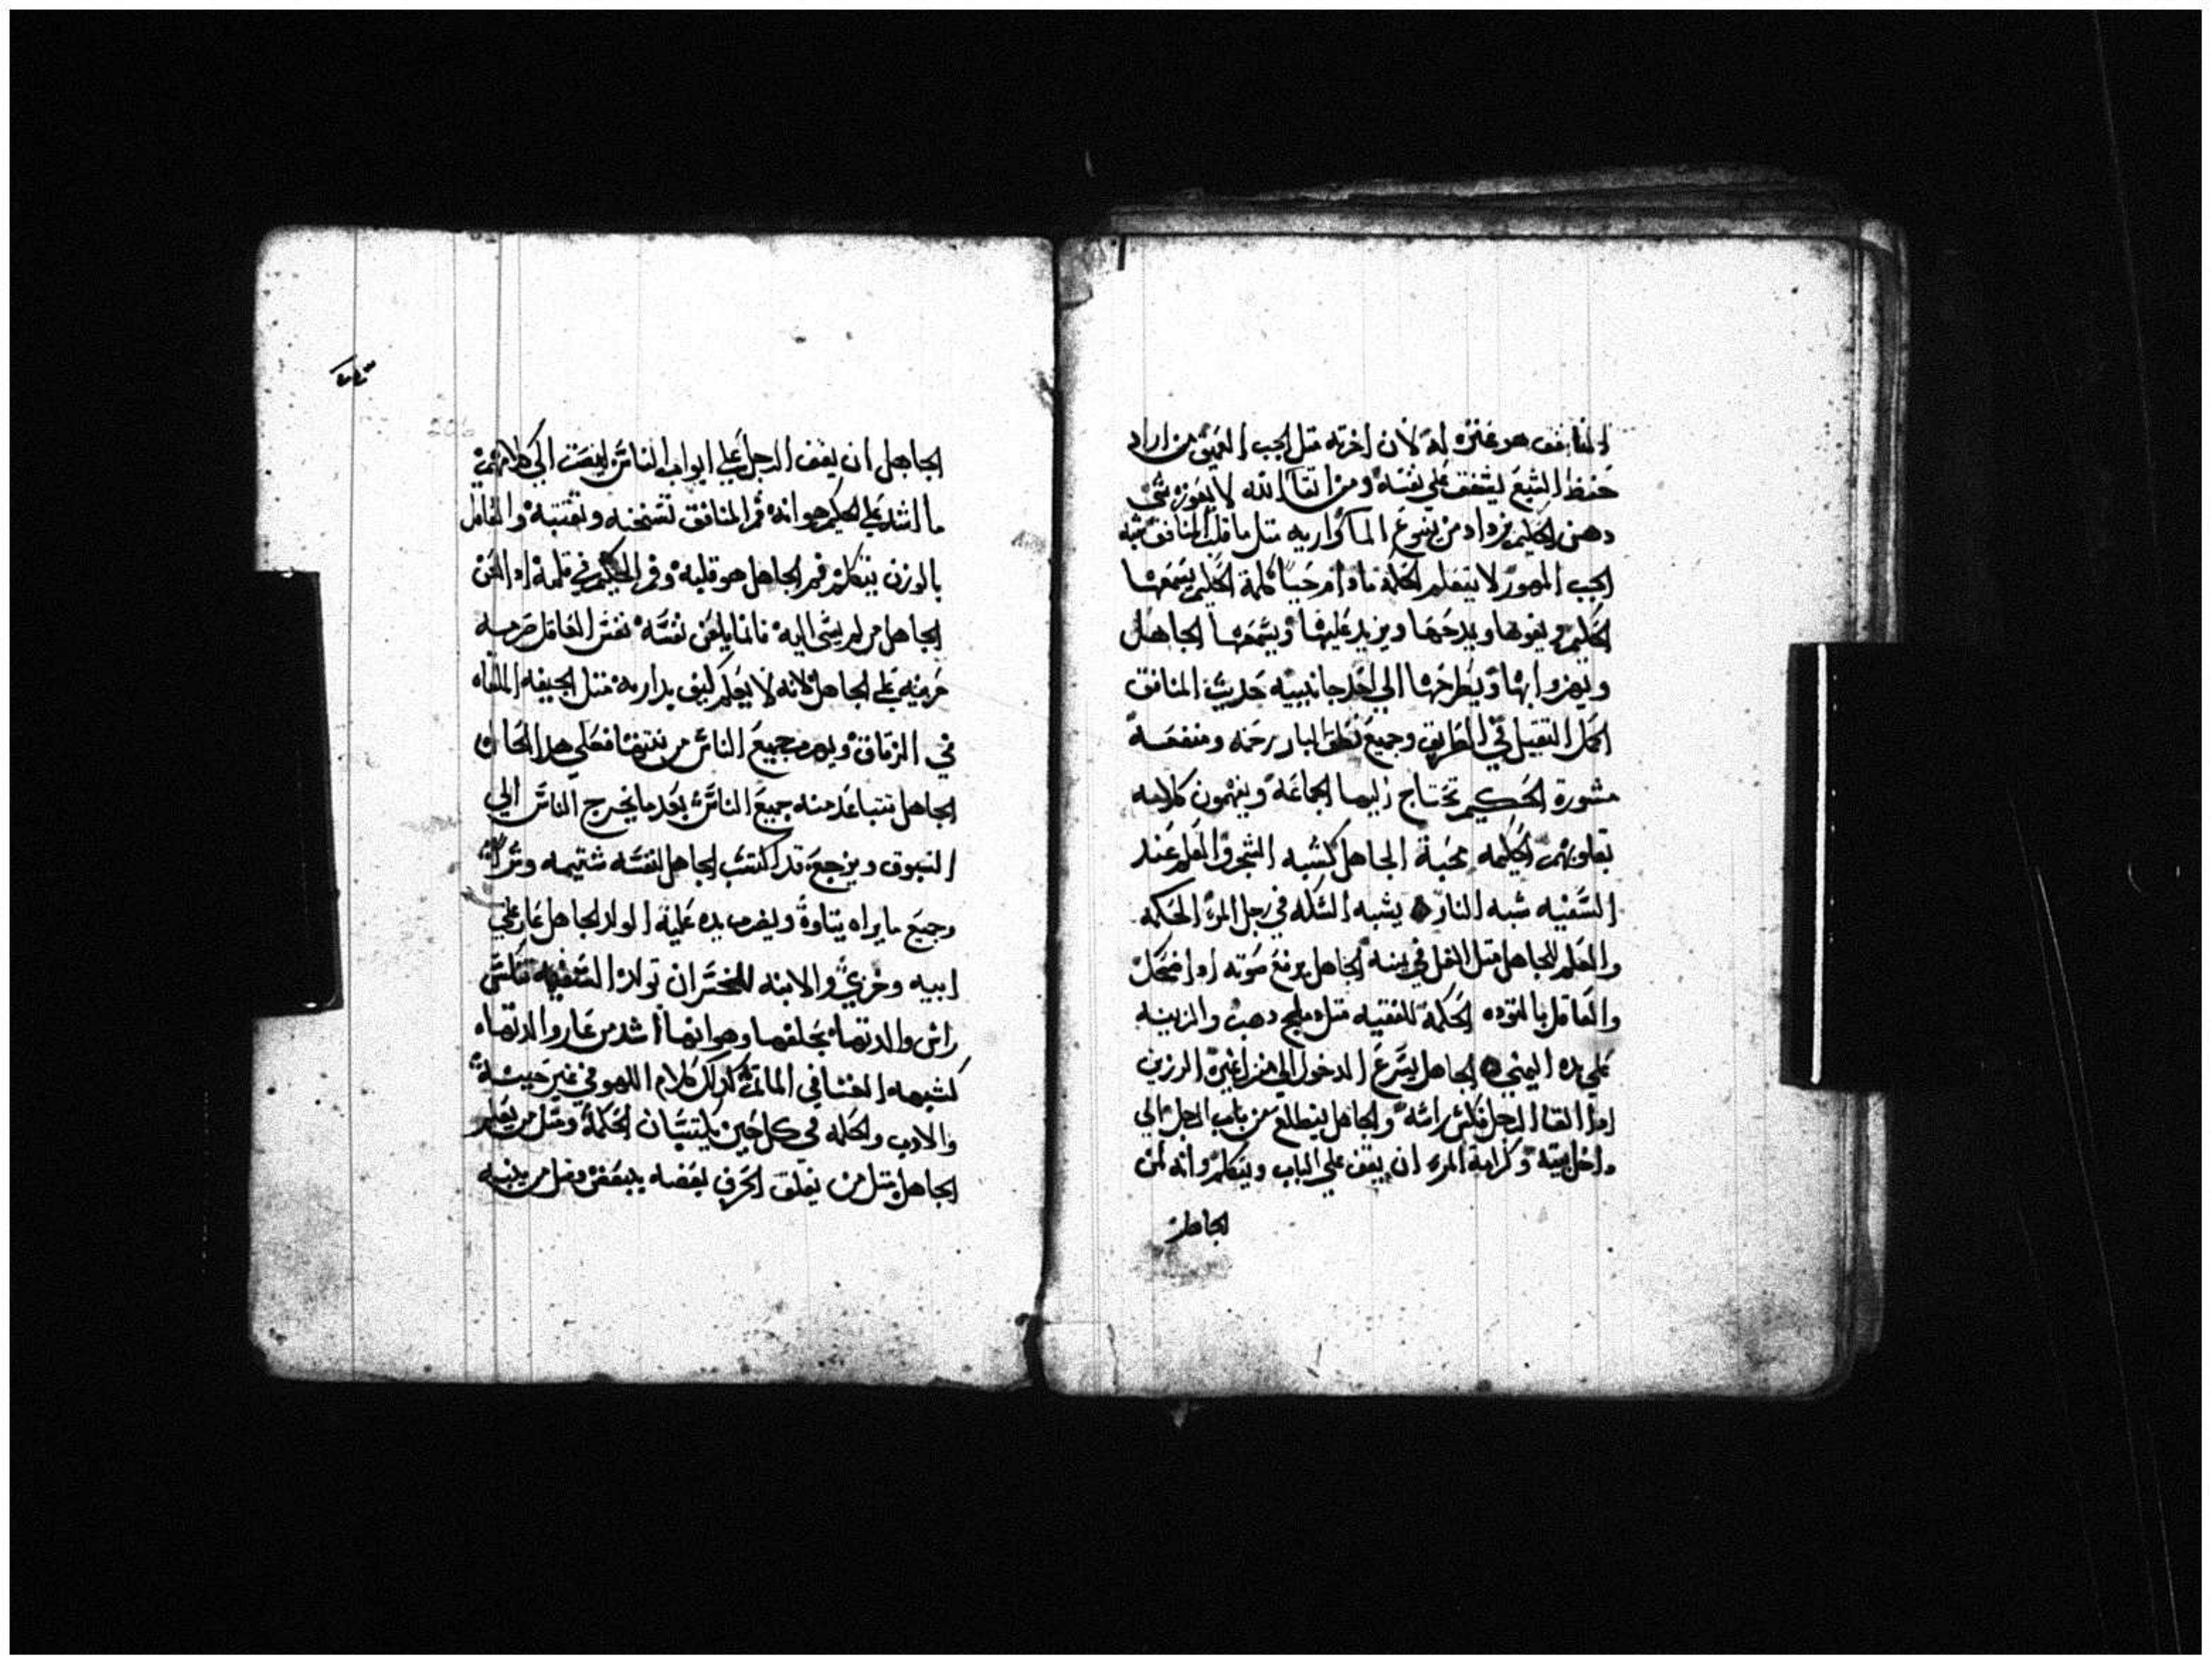 المنافق هو عنزه له لان اخرته متل الجب العميق من اراد
حفظ الشبع يشفق علي نفسه ومن اتقا الله لا يعوزه شي
دهن الحليم يزداد من ينبوع الما
الجب المهور لا يتعلم الحكمة ما دام حيا كلمة الحليم يسمعها
الحكيم ويمدحها ويزيد عليها ويسمعها الجاهل
ويهزوا بها ويطرحها الي احد جانبيه حديث المنافق
الحمل التقيل في الطريق وجميع نطق البار رحمه ومنفعه
مشورة الحكيم تحتاج اليها الجماعة ويفهمون كلامه
بقلوبهم الحكمه محبة الجاهل كشبه الشجر والعلم عند
السفيه شبه النار يشبه الشكله في رجل المرء الحكمه
والعلم للجاهل متل الغل في يمينه الجاهل يرفع صوته اذا ضحك
والعاقل بالتوده الحكمة للفقيه متل دهب والزينه
علي يده اليمني الجاهل يسرع الدخول الي منزل غيره الرزين
اذا القا الرجل نكس راسه والجاهل يتطلع من باب الرجل الي
داخل بيته وكرامة المرء ان يقف علي الباب ويتكلم وانه لمن
الجاهل
الجاهل ان يقف الرجل علي ابواب الناس لينصت الي كلامهم
ما اشد علي الحكيم هوانه فم المنافق وتعتبه والعاقل
بالوزن يتكلم فم الجاهل هو قلبه وفم الحكيم في قلبه اذا لعن
الجاهل من لم يسى اليه فانما يلعن نفسه نفس العاقل
حزينه علي الجاهل لانه لا يعلم كيف يداريه متل الجيفه الملقاه
في الزقاق ويهرب جميع الناس من نتنها فعلي هدا الحال
الجاهل تتباعد منه جميع الناس بعد ما يخرج الناس الي
السوق ويرجع قد اكتسب الجاهل لنفسه شتيمه وشرا
وجميع ما يراه يتاوه ويضرب يده عليه الولد الجاهل عار علي
ابيه وخزي والابنه للخسران تولد السفيهه تنكس
راس والدتها بخلقها وهوانها اشد من عار والدتها
كشبه الغنا في الماتم كدلك كلام اللهو في غير حينه
والادب والحكمه في كل حين يكتسبان الحكمة ومتل من يعلم
الجاهل متل من يعلق الخزف بعضه ببعض ومتل من ينبه